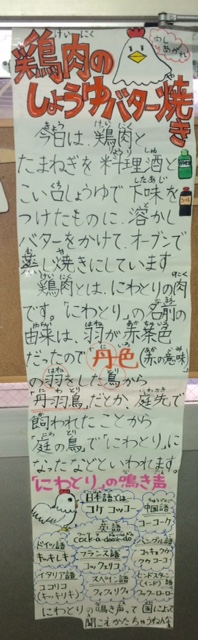 鶏肉の
しょうゆバター焼き
今日は、鶏肉と
たまねぎを料理酒と
こい口しょうゆで下味を
つけたものに、溶かし
バターをかけて、オーブンで
蒸し焼きにしています
鶏肉とは、にわとりの肉
です。「にわとり」の名前の
由来は、羽が茶色
だったので「丹色(赤の意味)
の羽をした鳥から
「丹羽鳥」だとか、庭先で
飼われたことから
「庭の鳥」で「にわとり」に
なったなどといわれます。
「にわとり」の鳴き声
日本語では
コケコッコー
中国語
コーコーク
英語
cock-a-doodle-doo
ドイツ語
キッキレキー
フランス語
コッフェリコ
ハングル語
コッキョクゥ
イタリア語
ココリコ
(キッキリキ)
スペイン語
ヒンドスタニー
「にわとり」の鳴き声って国によって
聞こえかたちがうんだね